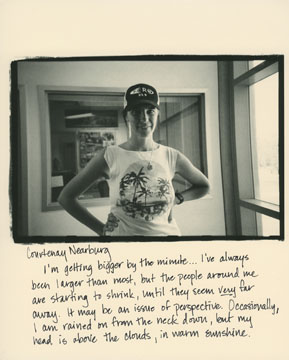 Courtenay Nearburg
I'm getting bigger by the minute... I've always
been larger than most, but the people around me
are starting to shrink, until they seem very far
away. It may be an issue of perspective. Occasionally,
I am rained on from the neck down, but my
head is above the clouds, in warm sunshine.